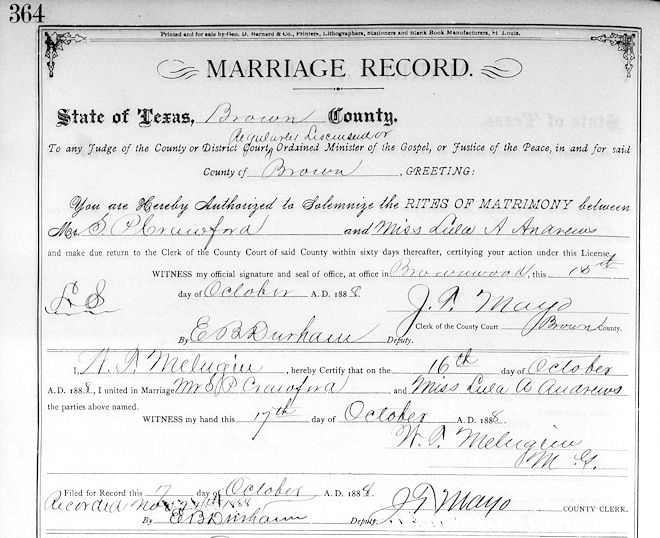 364
Printed and for sale by Geo. D. Barnard & Co., Printers, Lithographers, Stationers and Blank Book Manufacturers, St. Louis.
MARRIAGE RECORD.
State of Texas, Brown County.
Regularly Liscensed or
To any Judge of the County or District Court, Ordained Minister of the Gospel, or Justice of the Peace, in and for said
County of Brown, GREETING:
You are Hereby Authorized to Solemnize the RITES OF MATRIMONY between
Mr S. P. Crawford and Miss Lula A Andrews
and make due return to the Clerk of the County Court of said County within sixty days thereafter, certifying your action under this License.
WITNESS my official signature and seal of office, at office in Brownwood, this 15th
L S day of October A. D. 1888. J. T. Mayo
Clerk of the County Court Brown County.
By E B Durham Deputy.
I, W. T. Melugin, hereby Certify that on the 16th day of October
A. D. 1888, I united in Marriage Mr S P Crawford and Miss Lula A Andrews
the parties above named.
WITNESS my hand this 17th day of October A. D. 1888.
W. T. Melugin
M. G.
Filed for Record this 17 day of October A. D. 1888.
Recorded Nov 1888 J T Mayo COUNTY CLERK.
By E B Durham Deputy.